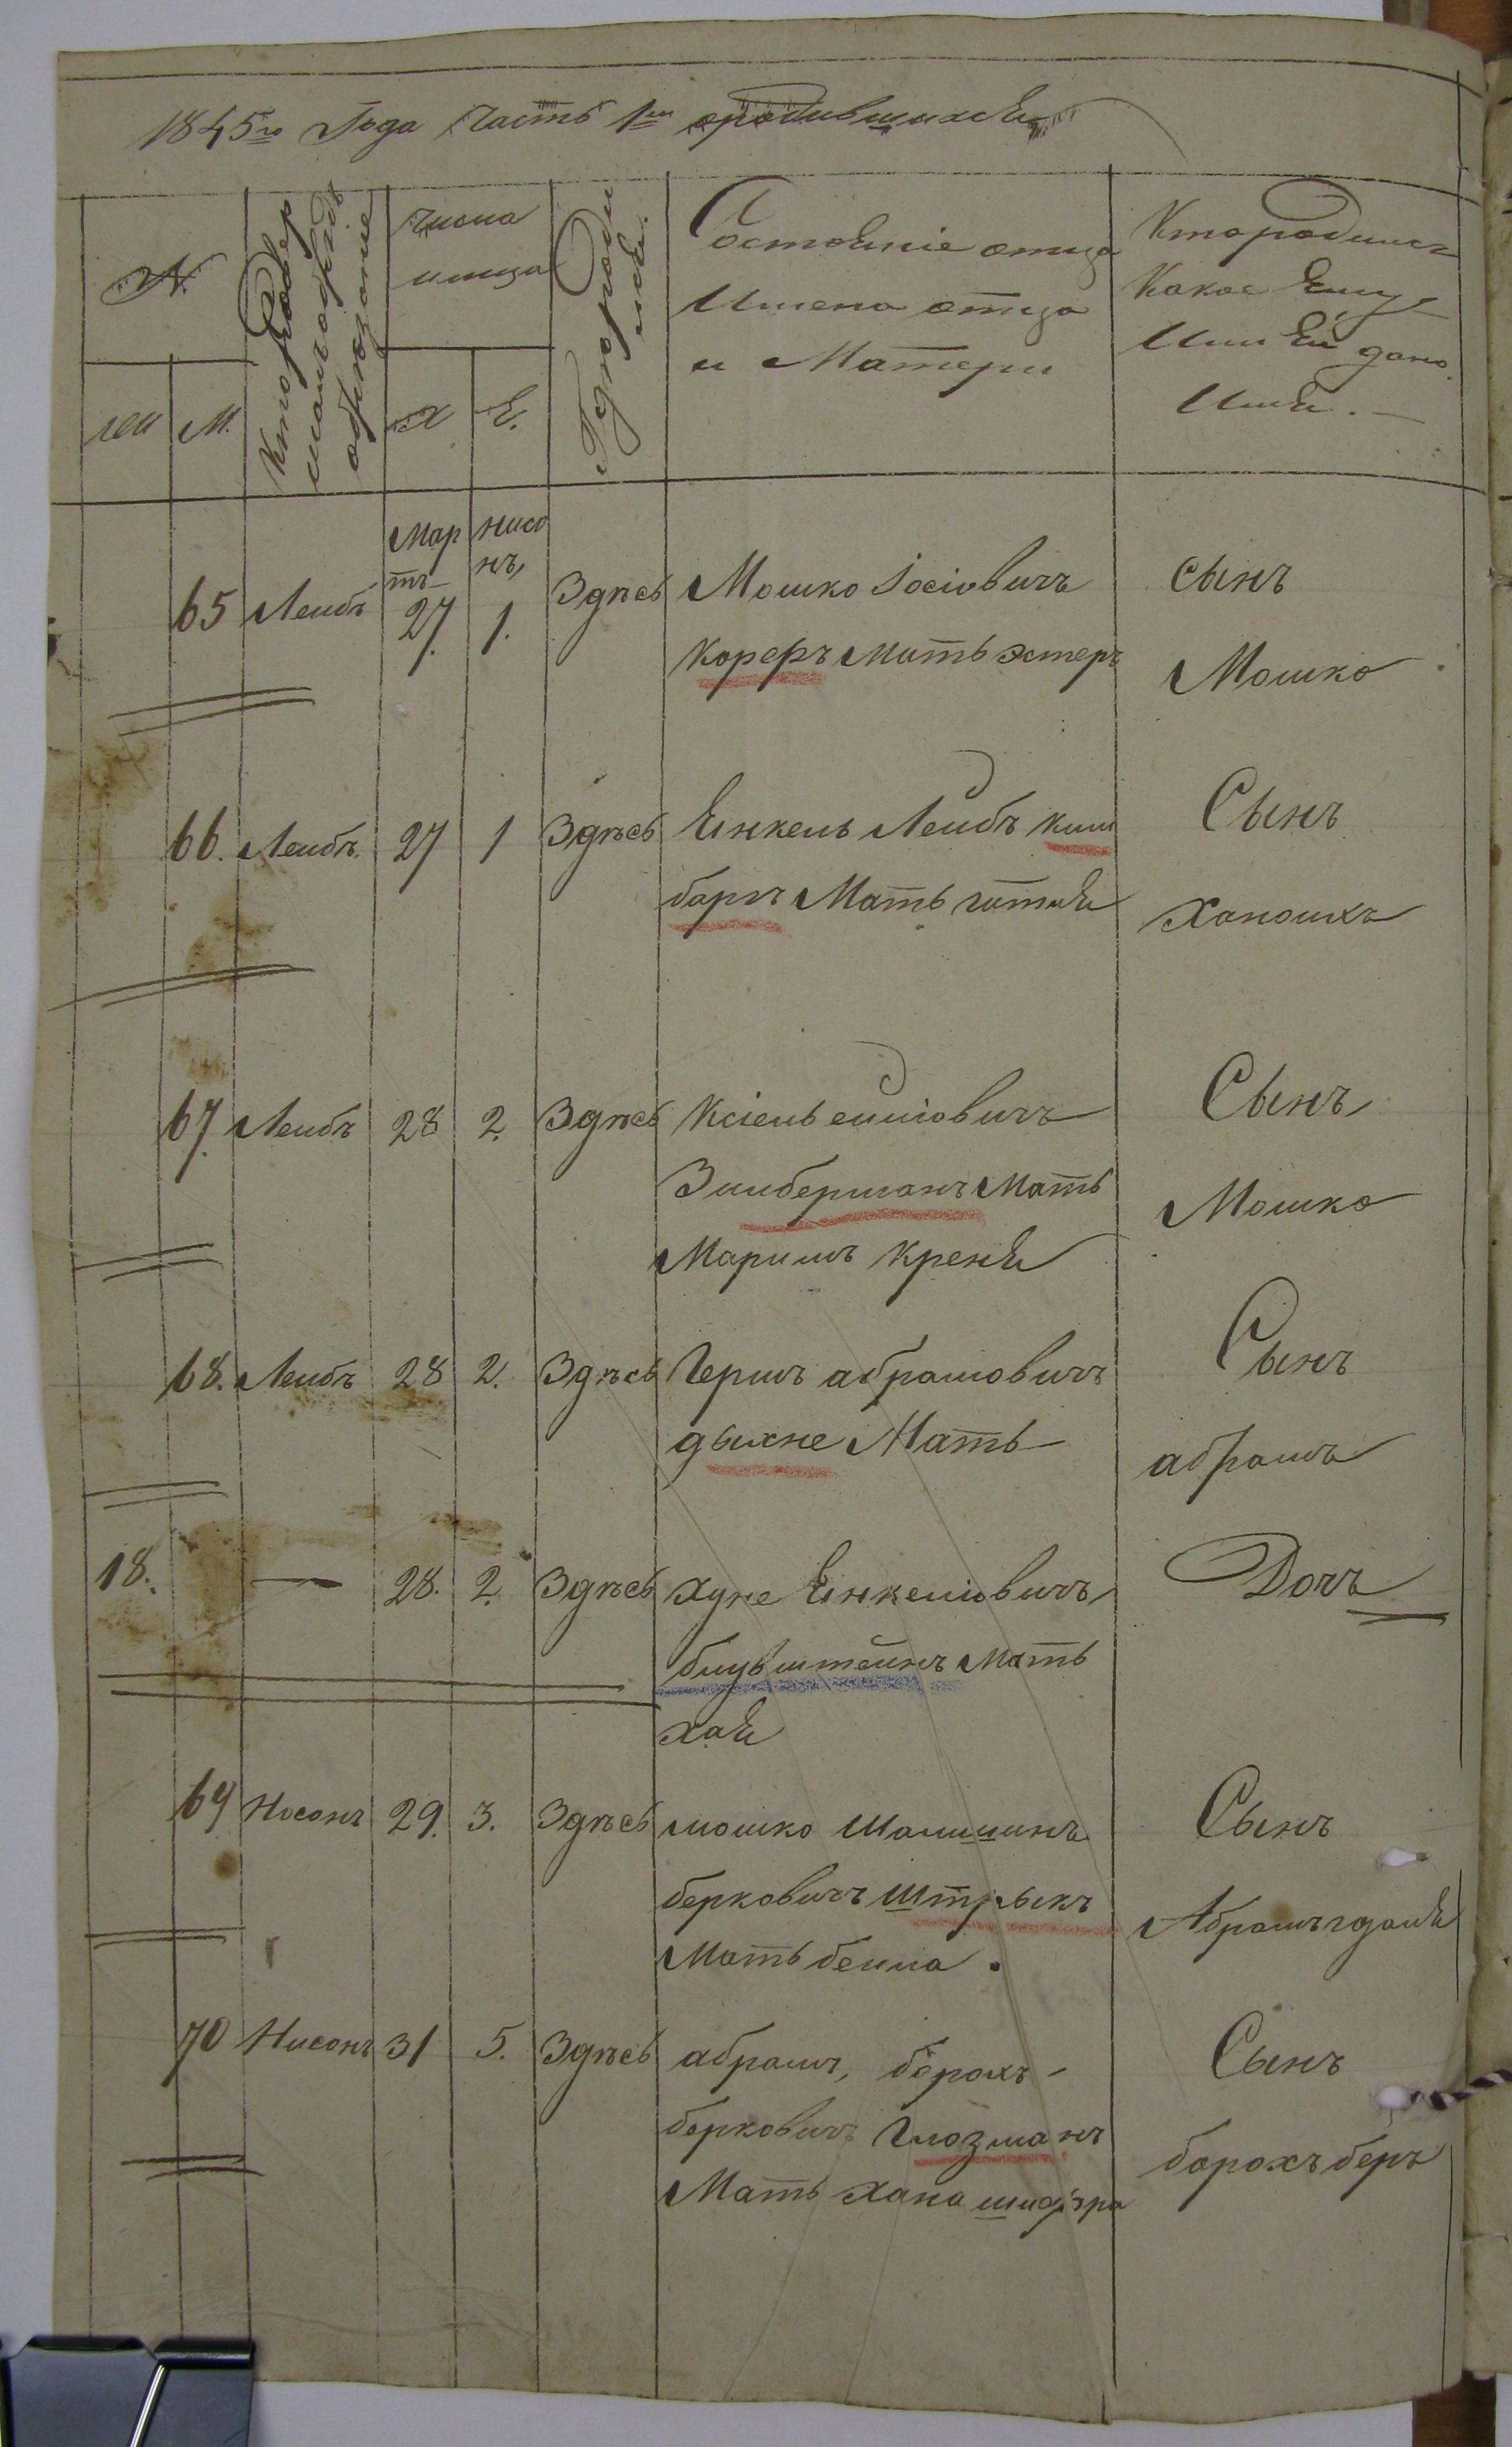 1845го Года Часть 1я родившихся
№
Кто совер
шалъ обрядъ
обрезание
числа
Где роди
лся.
Состояніе отца
Имена отца
и Матери
Кто родился
Какое Ему
Или Ей дано
Имя.
жен М. Х Е.
65 Лейбъ Мар
тъ 27. нисо
нъ 1. Здѣсь Мошко Іосіовичъ
кореръ мать эстеръ
сынъ
Мошко
66. Лейбъ. 27 1 Здѣсь Янкель Лейбъ ким
баръ Мать гитля
Сынъ
Ханоихъ
67. Лейбъ 28 2. Здѣсь Ксіель
Зимберманъ Мать
Маримъ Креня
Сынъ
Мошко
68. Лейбъ 28 2. Здѣсь Гершъ абрамовичъ
дыхне Мать
Сынъ
абрамъ
18. — 28. 2. Здѣсь хуне Янкеліовичъ
блувштейнъ мать
хая
Дочъ
69 Носонъ 29. 3. Здѣсь мошко
берковичъ штрыкъ
Мать бейла.
Сынъ
Абрамъ
70 Нисонъ 31 5. Здѣсь абрамъ, борохъ
берковичъ Глозманъ
Мать хана шифра
Сынъ
борохъ беръ